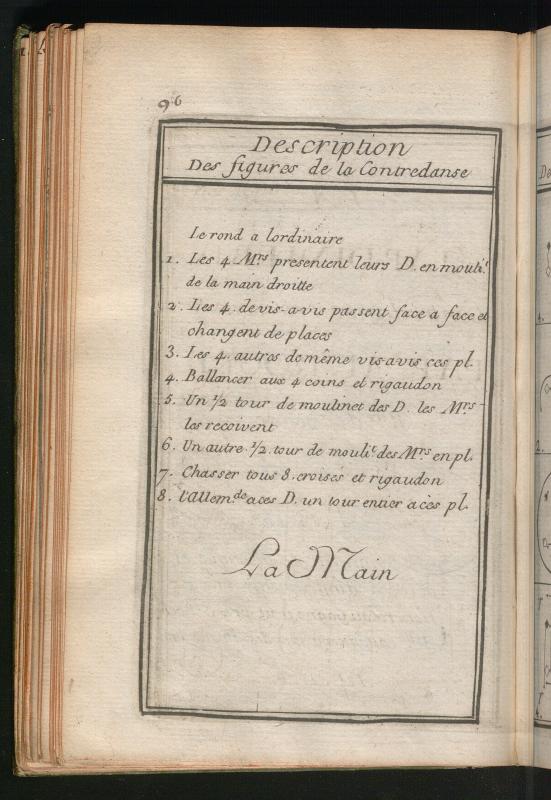 96
Description
Des figures de la Contredanse
Le rond a lordinaire
1. Les 4 Mrs presentent leurs D. en mouli.t
de la main droitte
2. Les 4. de vis-a-vis passent face a face et
changent de places
3. Les 4. autres de même vis-a-vis ces pl.
4. Ballancer aux 4 coins et rigaudon
5. Un 1/2 tour de moulinet des D. les Mrs
les recoivent
6. Un autre 1/2 tour de mouli.t des Mrs en pl.
7. Chasser tous 8. croisés et rigaudon
8. l'allem.de a ces D. un tour entier a ces pl.
La Main